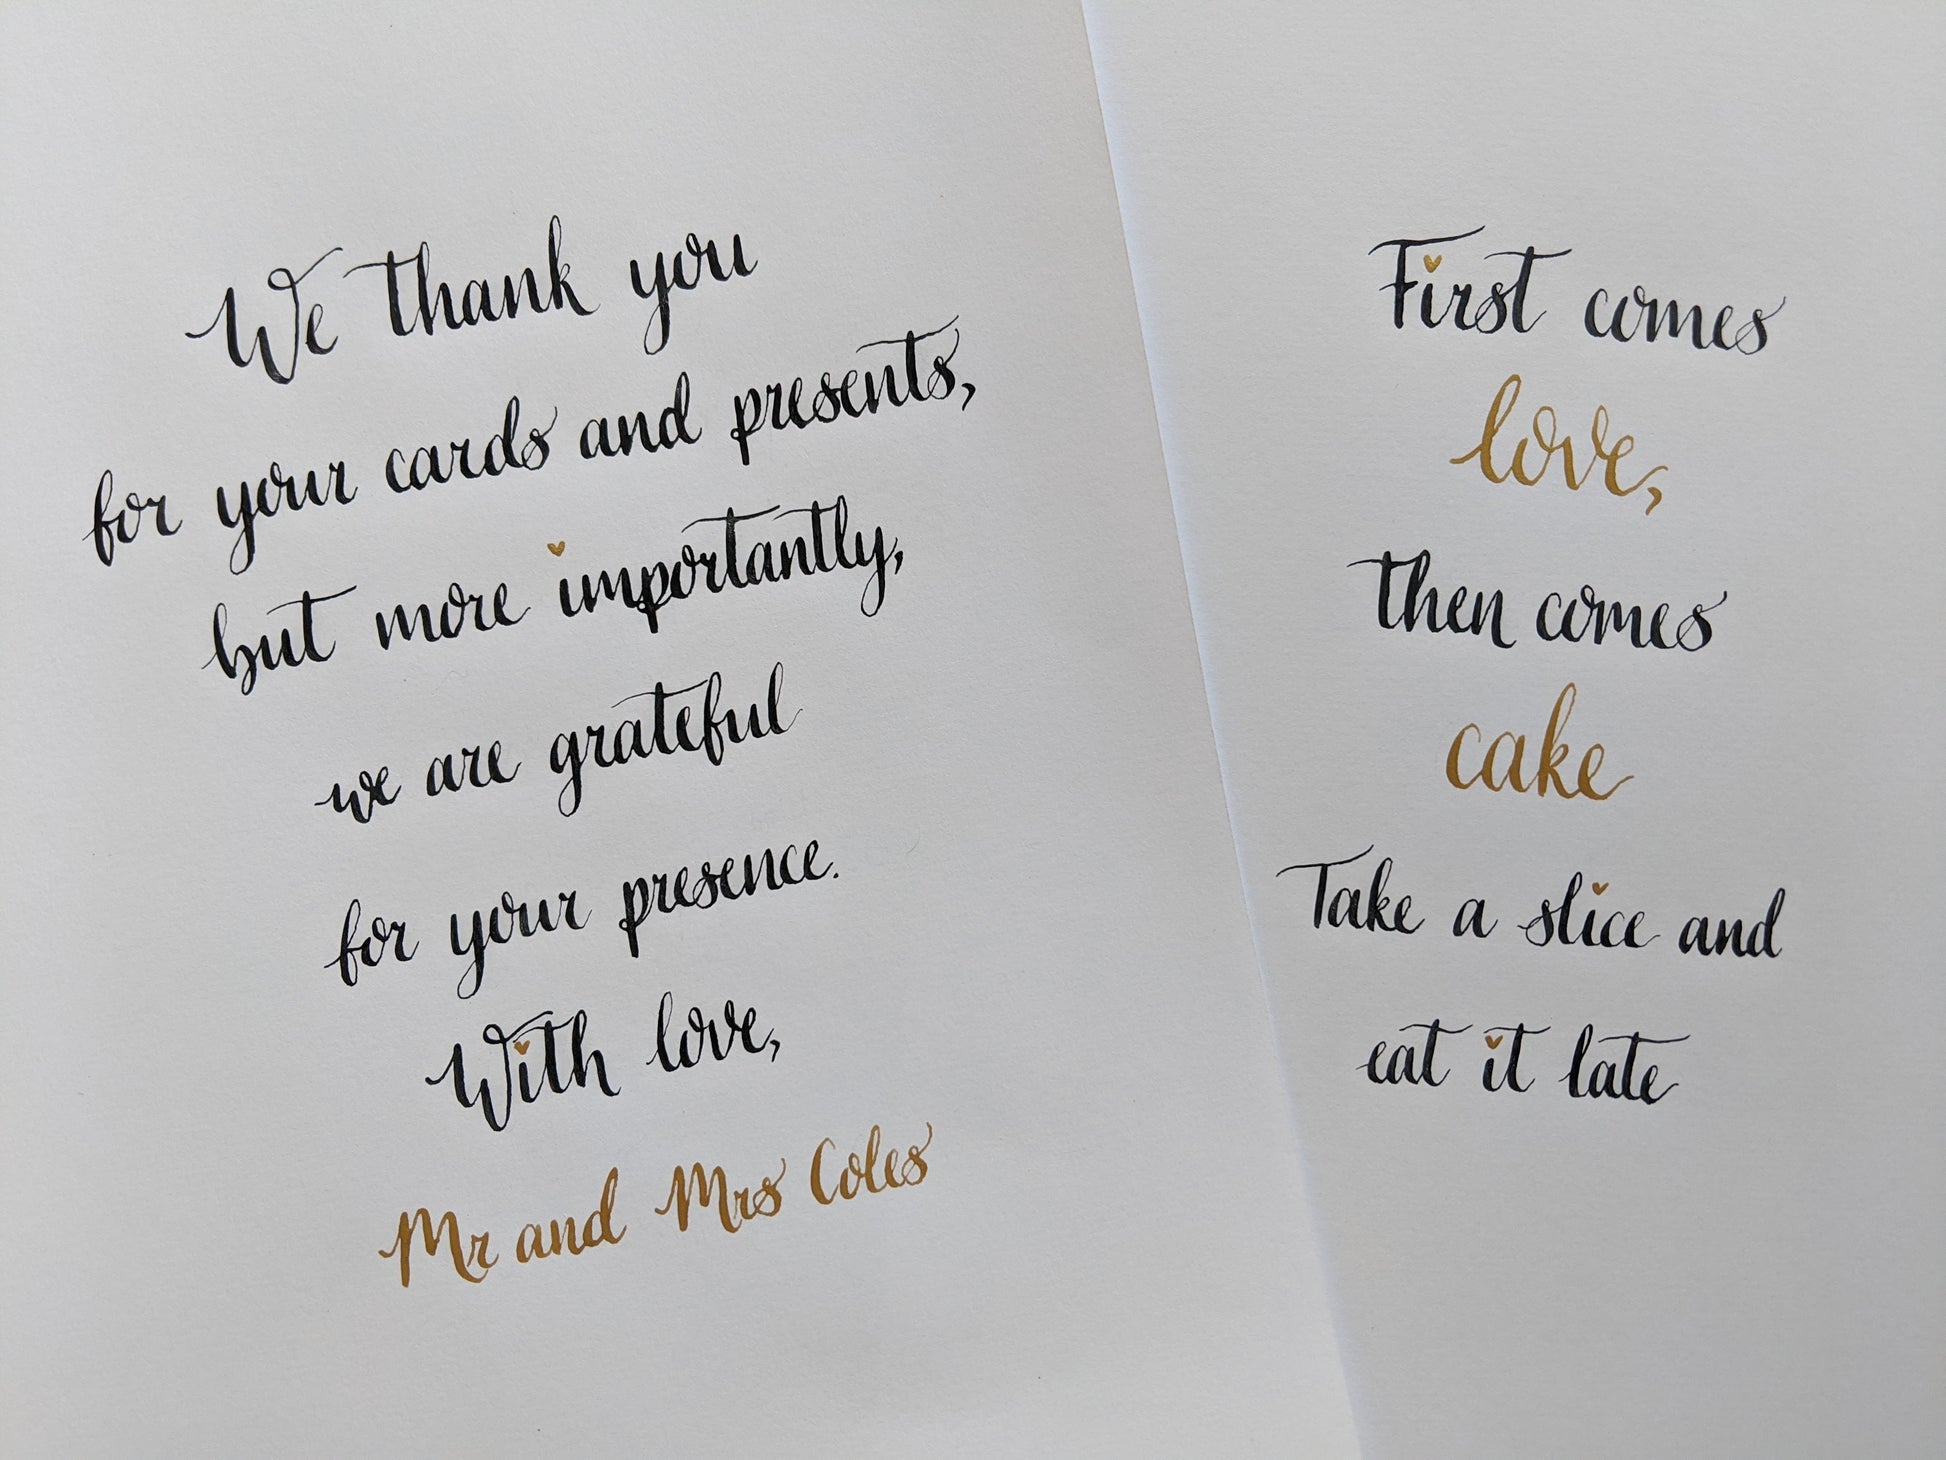 We thank you
for your cards and presents,
but more importantly,
we are grateful
for your presence.
With love,
Mr and Mrs Coles
First comes
love,
then comes
cake
Take a slice and
eat it late